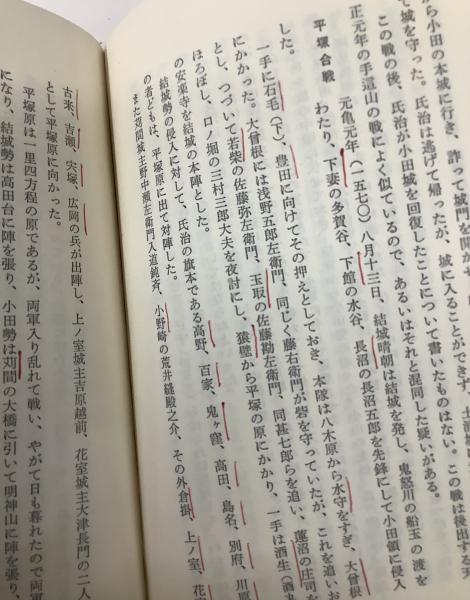 から小田の本城に行き、詐って城門を開か
て城を守った。氏治は逃げて帰ったが、城に入ることができず、土浦
この戦の後、氏治が小田城を回復したことについて書いたものはない。この戦は後出する
正元年の手這山の戦によく似ているので、あるいはそれと混同した疑いがある。
平塚合戦　元亀元年（一五七〇）八月十三日、結城晴朝は結城を発し、鬼怒川の船玉の渡を
わたり、下妻の多賀谷、下館の水谷、長沼の長沼五郎を先鋒にして小田領に侵入
した。
一手に石毛（下）、豊田に向けてその押えとしておき、本隊は八木原から水守をすぎ、大曾根
にかかった。大曾根には浅野五郎左衛門、同じく藤右衛門が砦を守っていたが、これを追いお
とし、つづいて若柴の佐藤弥左衛門、玉取の佐藤勘左衛門、同甚七郎らを追い、蓮沼の庄司を
ほろぼし、口ノ堀の三村三郎大夫を夜討にし、猿壁から平塚の原にかかり、一手は酒生（酒
の安楽寺を結城の本陣とした。
結城勢の侵入に対して、氏治の旗本である高野、百家、鬼ヶ窪、高田、島名、別府、川原
の者どもは、平塚原に出て対陣した。
また苅間城主野中瀬左衛門入道鈍斉、小野崎の荒井縫殿之介、その外倉掛、上ノ室、花室
古来、吉瀬、宍塚、広岡の兵が出陣し、上ノ室城主吉原越前、花室城主大津長門の二人
として平塚原に向かった。
平塚原は一里四方程の原であるが、両軍入り乱れて戦い、やがて日も暮れたので両軍
になり、結城勢は高田台に陣を張り、小田勢は苅間の大橋に引いて明神山に陣を張り、